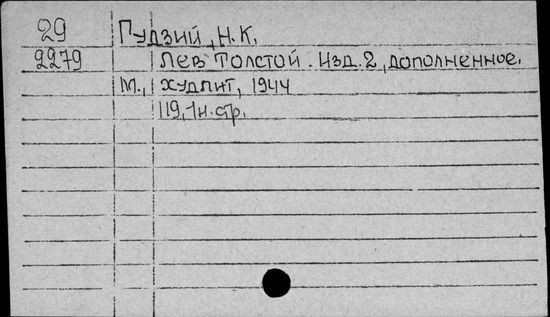 29 Гудзий, Н.К.
2279 Лев Толстой. Изд.2, дополненное.
М., худлит, 1944
119, 1н.стр.